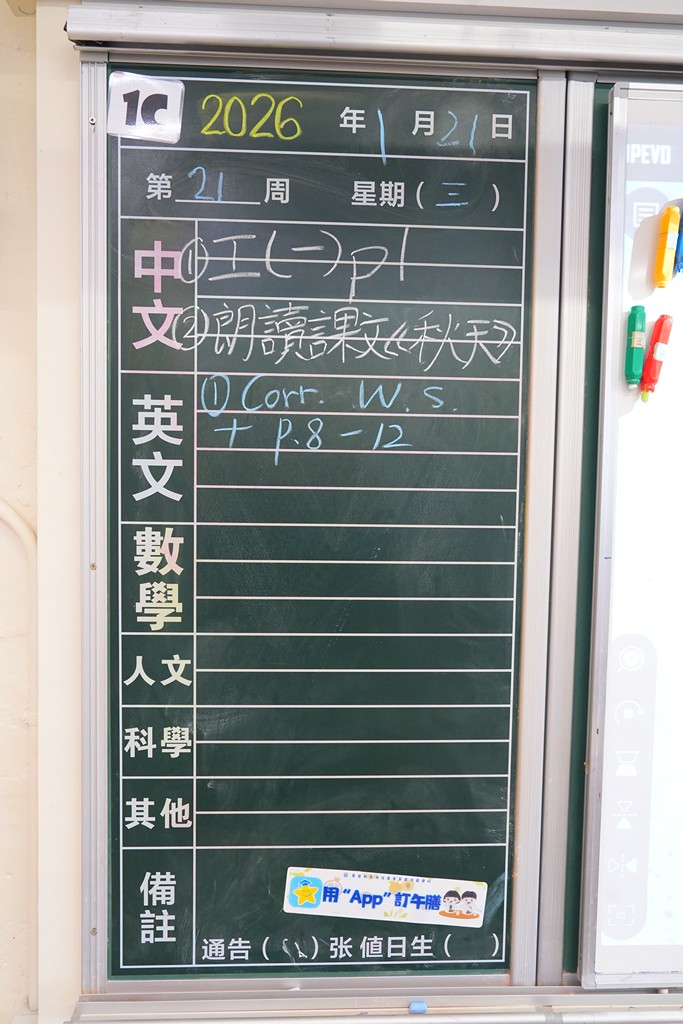 1C
2026 年 1 月 21 日
第 21 周 星期 ( 三 )
中文
① 工(一) p1
② 朗讀課文《秋天》
英文
① Corr. W.S.
+ p.8 – 12
數學
人文
科學
其他
備註
用 “App” 訂午膳
通告 ( ) 张 值日生 ( )
IPEVO